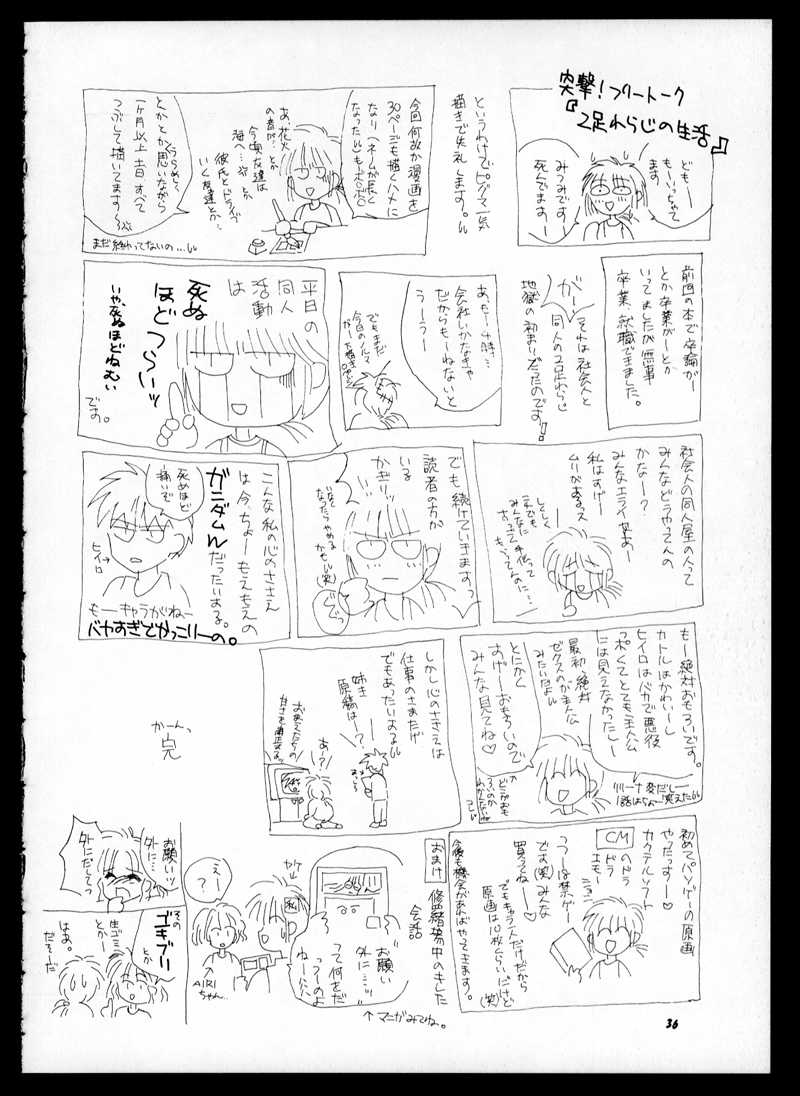 突撃！フリートーク
『2足わらじの生活』
どもー
もーいっちゃて
ます
みつみです
死んでますー
というわけでピンマ一気
描きで失礼します。
今回何故か漫画を
30ページも描くハメに
なり（ネームが長く
なった）もーボロボロ
あ、花火
の音が…とか
今頃友達は
海へ…とか
彼氏とドライブ
いく友達とか…
とかとか思いながら
一ヶ月以上土日すべて
つぶして描いてます〜
まだ終わってないの…
前回の本で卒論がー
とか卒業がーとか
いってましたが無事
卒業、就職できました。
がーっ
それは社会人と
同人の2足わらじ
地獄の初まりだったのです!!
あっもー4時…
会社いかなきゃ
だからもーねないと
うーう?
でもまだ
今日のノルマ
平日の
同人
活動
は
死ぬ
ほど
つらいッ
いや、死ぬほどねむい
です。
社会人の同人屋の人って
みんなどうやってんの
かなー?
みんなエライなあー
私はすげー
ムリがあるス
しくしく
これでも
みんなに
手伝って
もらってんのに…
でも続けていきますっ
読者の方が
いる
かぎりッ
いなく
なったらやめる
かもしれ(笑)
こんな私の心のささえ
は今ちょーもえもえの
ガニダムW
だったいよる。
死ぬほど
痛いぞ
ヒイロ
もーキャラがいねー
バヤすぎでかっこりーの。
もー絶対おもろいです。
カトルはかわいーし
ヒイロはバカで悪役
っぽくてとても主人公
には見えなかったしー
最初、絶対
ゼクスのが主人公
みたいだよ
とにかく
すげーおもろいので
みんな見てね♡
リリーナ変だしー
1話はちょー笑えた
しかし心のささえは
仕事のさまたげ
でもあったいよる
姉キ
原稿は?
あ!?
かーん。
完
初めてパソゲーの原画
やったっすー♡
カクテルソフト
CM
のドラ
ドラ
エモー
うつーは禁ゲー
です(笑)みんな
買ってねー♡
でもキャラ一人だけだから
原画は10枚くらいだけど
(笑)
今後も機会があればやってきます。
おまけ
修羅場中のきした
会話
お願い
外に…ッ
って何をだ
っつーのよ
ねー
↑マニがみてね。
ヤケ
私
えー
?
AIRI
ちゃん…
そのー
ゴキブリー
とか
生ゴミー
とかー
はあ。
だそーだ
お願いッ
外に…
外にだしてっ
36